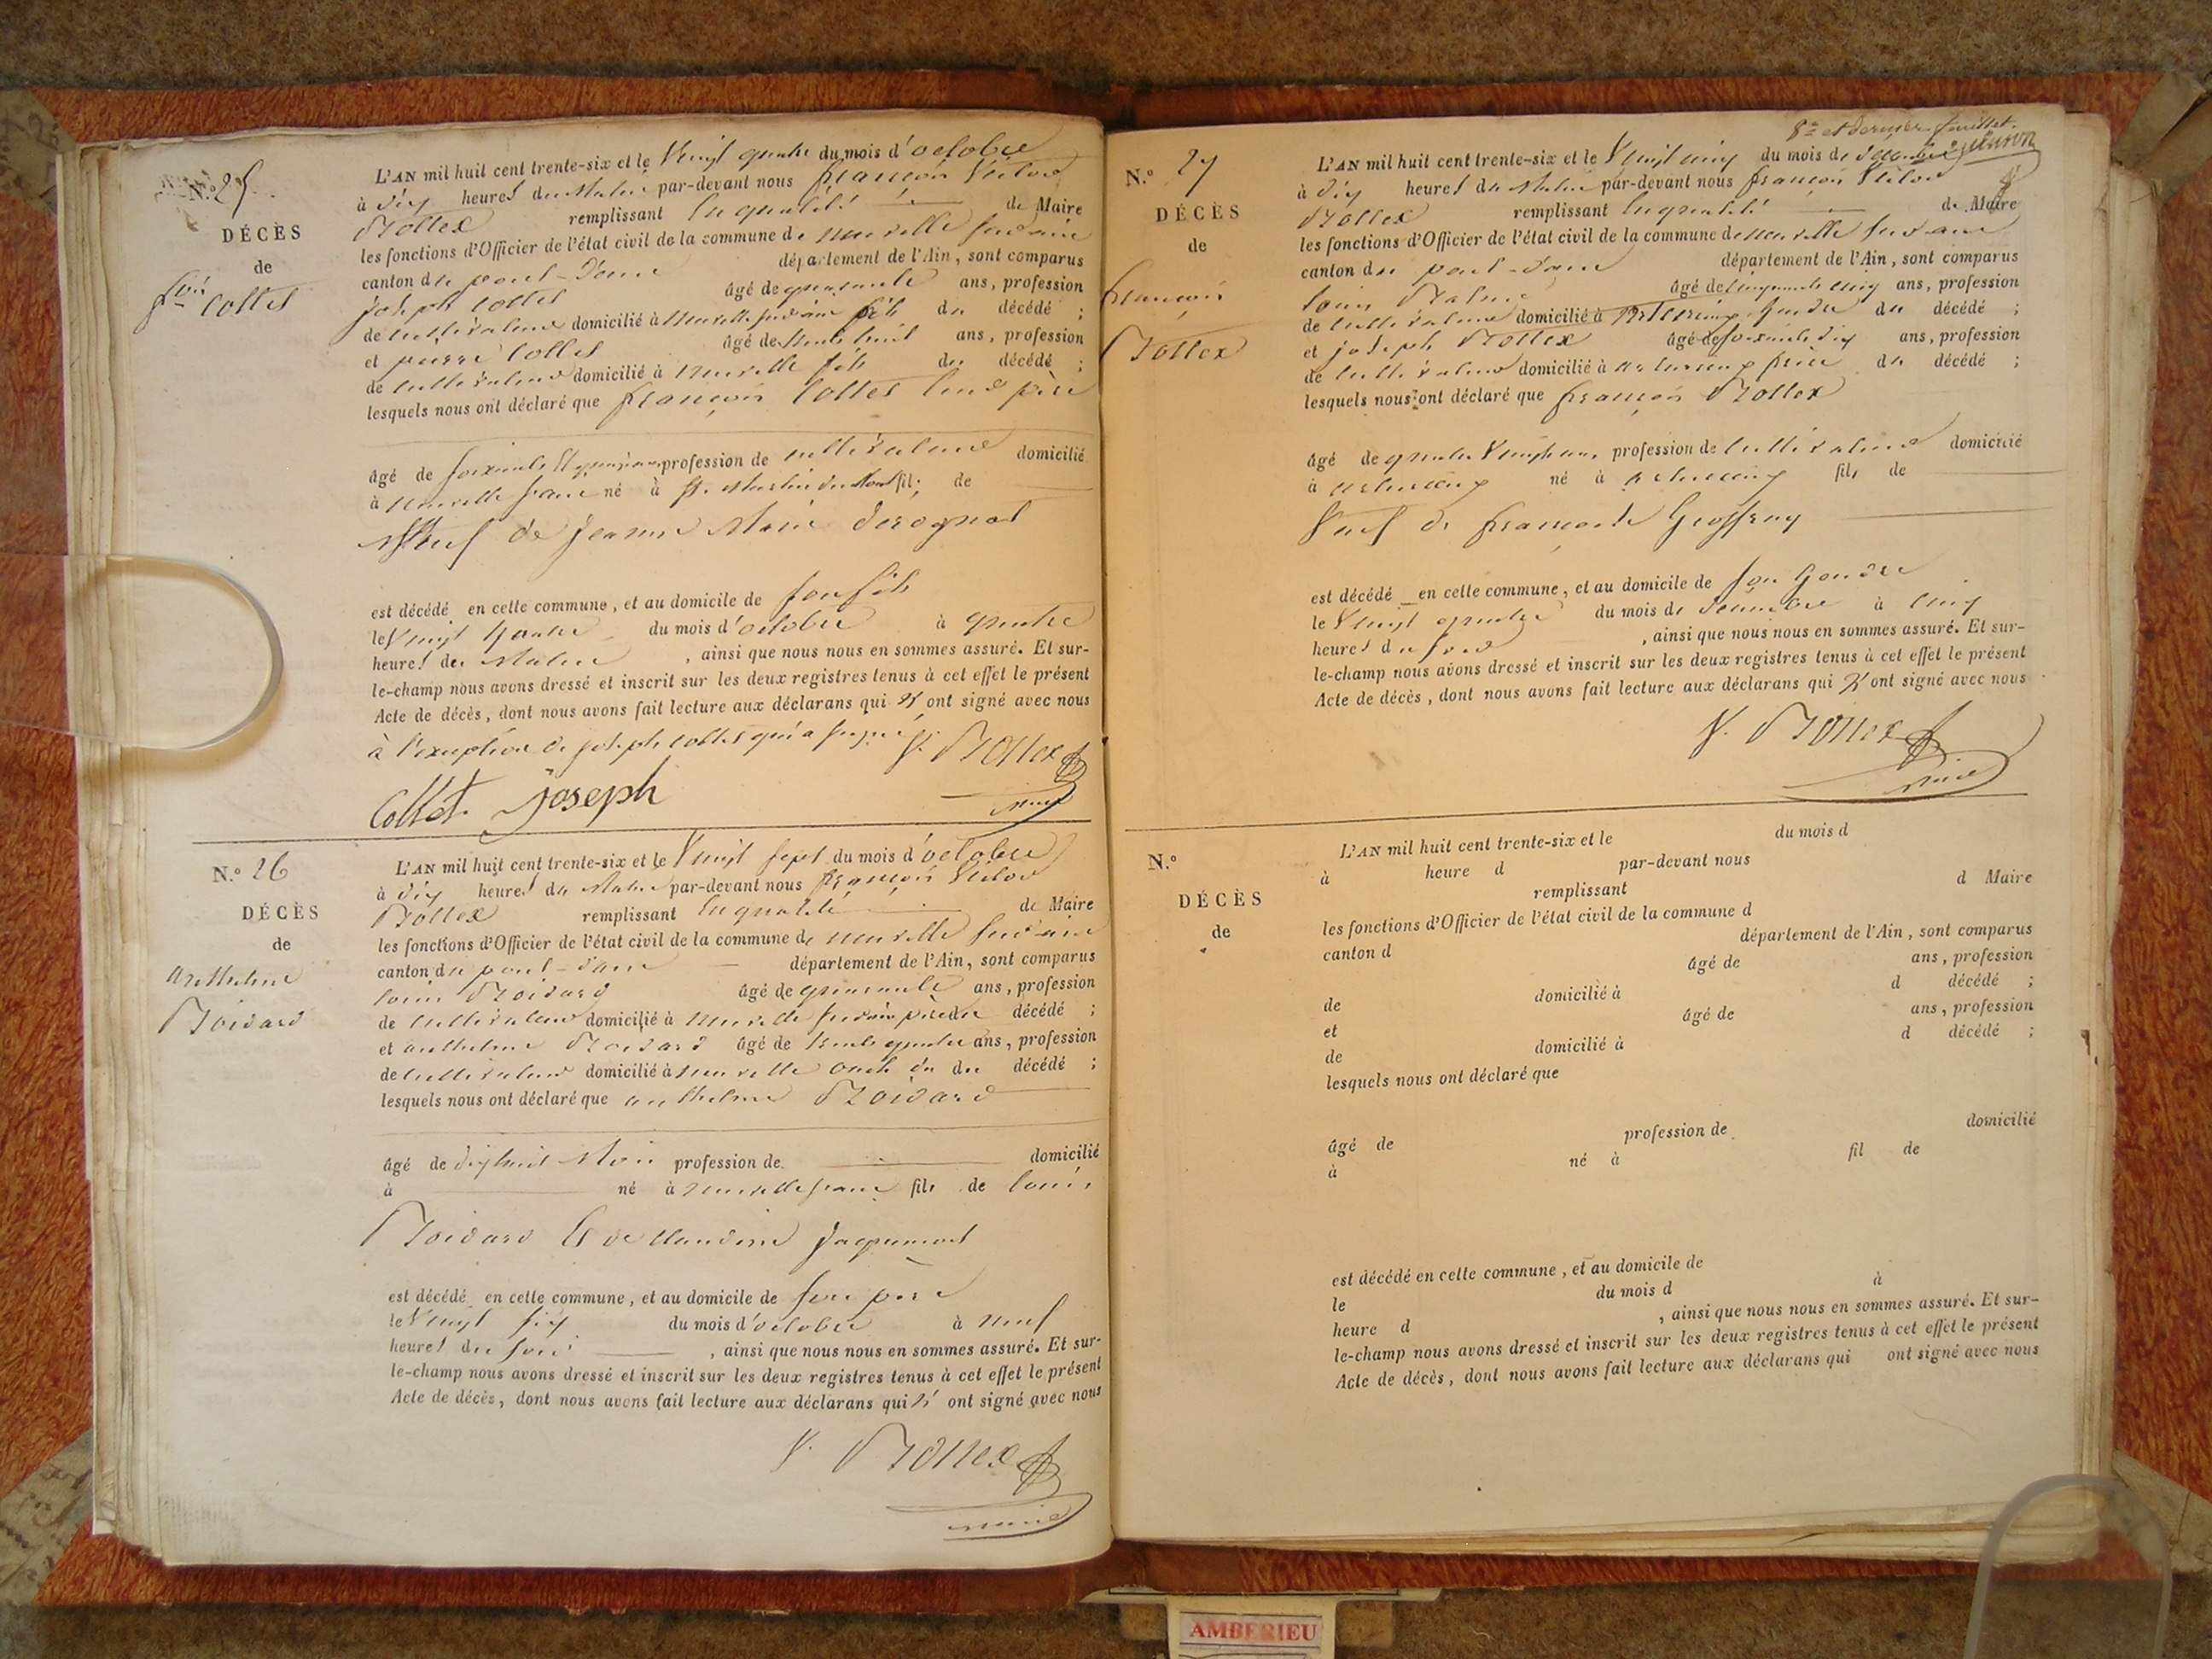 N.° 25
DÉCÈS
de
fçois
Collet
L'AN mil huit cent trente-six et le Vingt quatre du mois d'octobre
à dix heures du Matin par-devant nous françois Victor
Bollex remplissant en qualité de Maire
les fonctions d'Officier de l'état civil de la commune de neuville sur ain
canton du pont-d'ain département de l'Ain, sont comparus
joseph collet âgé de quarante ans, profession
de cultivateur domicilié à Neuville sur ain fils du décédé ;
et pierre Collet âgé de trente huit ans, profession
de cultivateur domicilié à neuville fils du décédé ;
lesquels nous ont déclaré que françois Collet leur père
âgé de soixante et quinze ans profession de cultivateur domicilié
à neuville sur ain né à St. Martin du Mont fils de
Veuf de jeanne Marie
est décédé en cette commune, et au domicile de son fils
le Vingt quatre du mois d'octobre à quatre
heures du Matin , ainsi que nous nous en sommes assuré. Et sur-
le-champ nous avons dressé et inscrit sur les deux registres tenus à cet effet le présent
Acte de décès, dont nous avons fait lecture aux déclarans qui n'ont signé avec nous
à l'exception de joseph collet qui a signé V. Bollex
Collet Joseph maire
N.° 26
DÉCÈS
de
anthelme
Boidard
L'AN mil huit cent trente-six et le Vingt sept du mois d'octobre
à dix heures du Matin par-devant nous françois Victor
Bollex remplissant en qualité de Maire
les fonctions d'Officier de l'état civil de la commune de neuville sur ain
canton du pont-d'ain département de l'Ain, sont comparus
louis Boidard âgé de quarante ans, profession
de cultivateur domicilié à neuville sur ain père du décédé ;
et anthelme Boidard âgé de trente quatre ans, profession
de cultivateur domicilié à neuville oncle du décédé ;
lesquels nous ont déclaré que anthelme Boidard
âgé de dix huit Mois profession de domicilié
à né à neuville sur ain fils de louis
Boidard et de claudine jaquemont
est décédé en cette commune, et au domicile de son père
le Vingt six du mois d'octobre à neuf
heures du soir , ainsi que nous nous en sommes assuré. Et sur-
le-champ nous avons dressé et inscrit sur les deux registres tenus à cet effet le présent
Acte de décès, dont nous avons fait lecture aux déclarans qui n'ont signé avec nous
V. Bollex
maire
8e et dernier feuillet.
N.° 27
DÉCÈS
de
françois
Bollex
L'AN mil huit cent trente-six et le Vingt cinq du mois de décembre
à dix heures du Matin par-devant nous françois Victor
Bollex remplissant en qualité de Maire
les fonctions d'Officier de l'état civil de la commune de neuville sur ain
canton du pont-d'ain département de l'Ain, sont comparus
louis âgé de cinquante cinq ans, profession
de cultivateur domicilié à gendre du décédé ;
et joseph Bollex âgé de soixante dix ans, profession
de cultivateur domicilié à frère du décédé ;
lesquels nous ont déclaré que françois Bollex
âgé de quatre Vingts ans profession de cultivateur domicilié
à né à fils de
Veuf de françoise Geoffray
est décédé en cette commune, et au domicile de son gendre
le Vingt quatre du mois de décembre à cinq
heures du soir , ainsi que nous nous en sommes assuré. Et sur-
le-champ nous avons dressé et inscrit sur les deux registres tenus à cet effet le présent
Acte de décès, dont nous avons fait lecture aux déclarans qui n'ont signé avec nous
V. Bollex
maire
N.°
DÉCÈS
de
L'AN mil huit cent trente-six et le du mois d
à heure d par-devant nous
remplissant d Maire
les fonctions d'Officier de l'état civil de la commune d
canton d département de l'Ain, sont comparus
âgé de ans, profession
de domicilié à d décédé ;
et âgé de ans, profession
de domicilié à d décédé ;
lesquels nous ont déclaré que
âgé de profession de domicilié
à né à fil de
est décédé en cette commune, et au domicile de
le du mois d à
heure d , ainsi que nous nous en sommes assuré. Et sur-
le-champ nous avons dressé et inscrit sur les deux registres tenus à cet effet le présent
Acte de décès, dont nous avons fait lecture aux déclarans qui ont signé avec nous
AMBERIEU